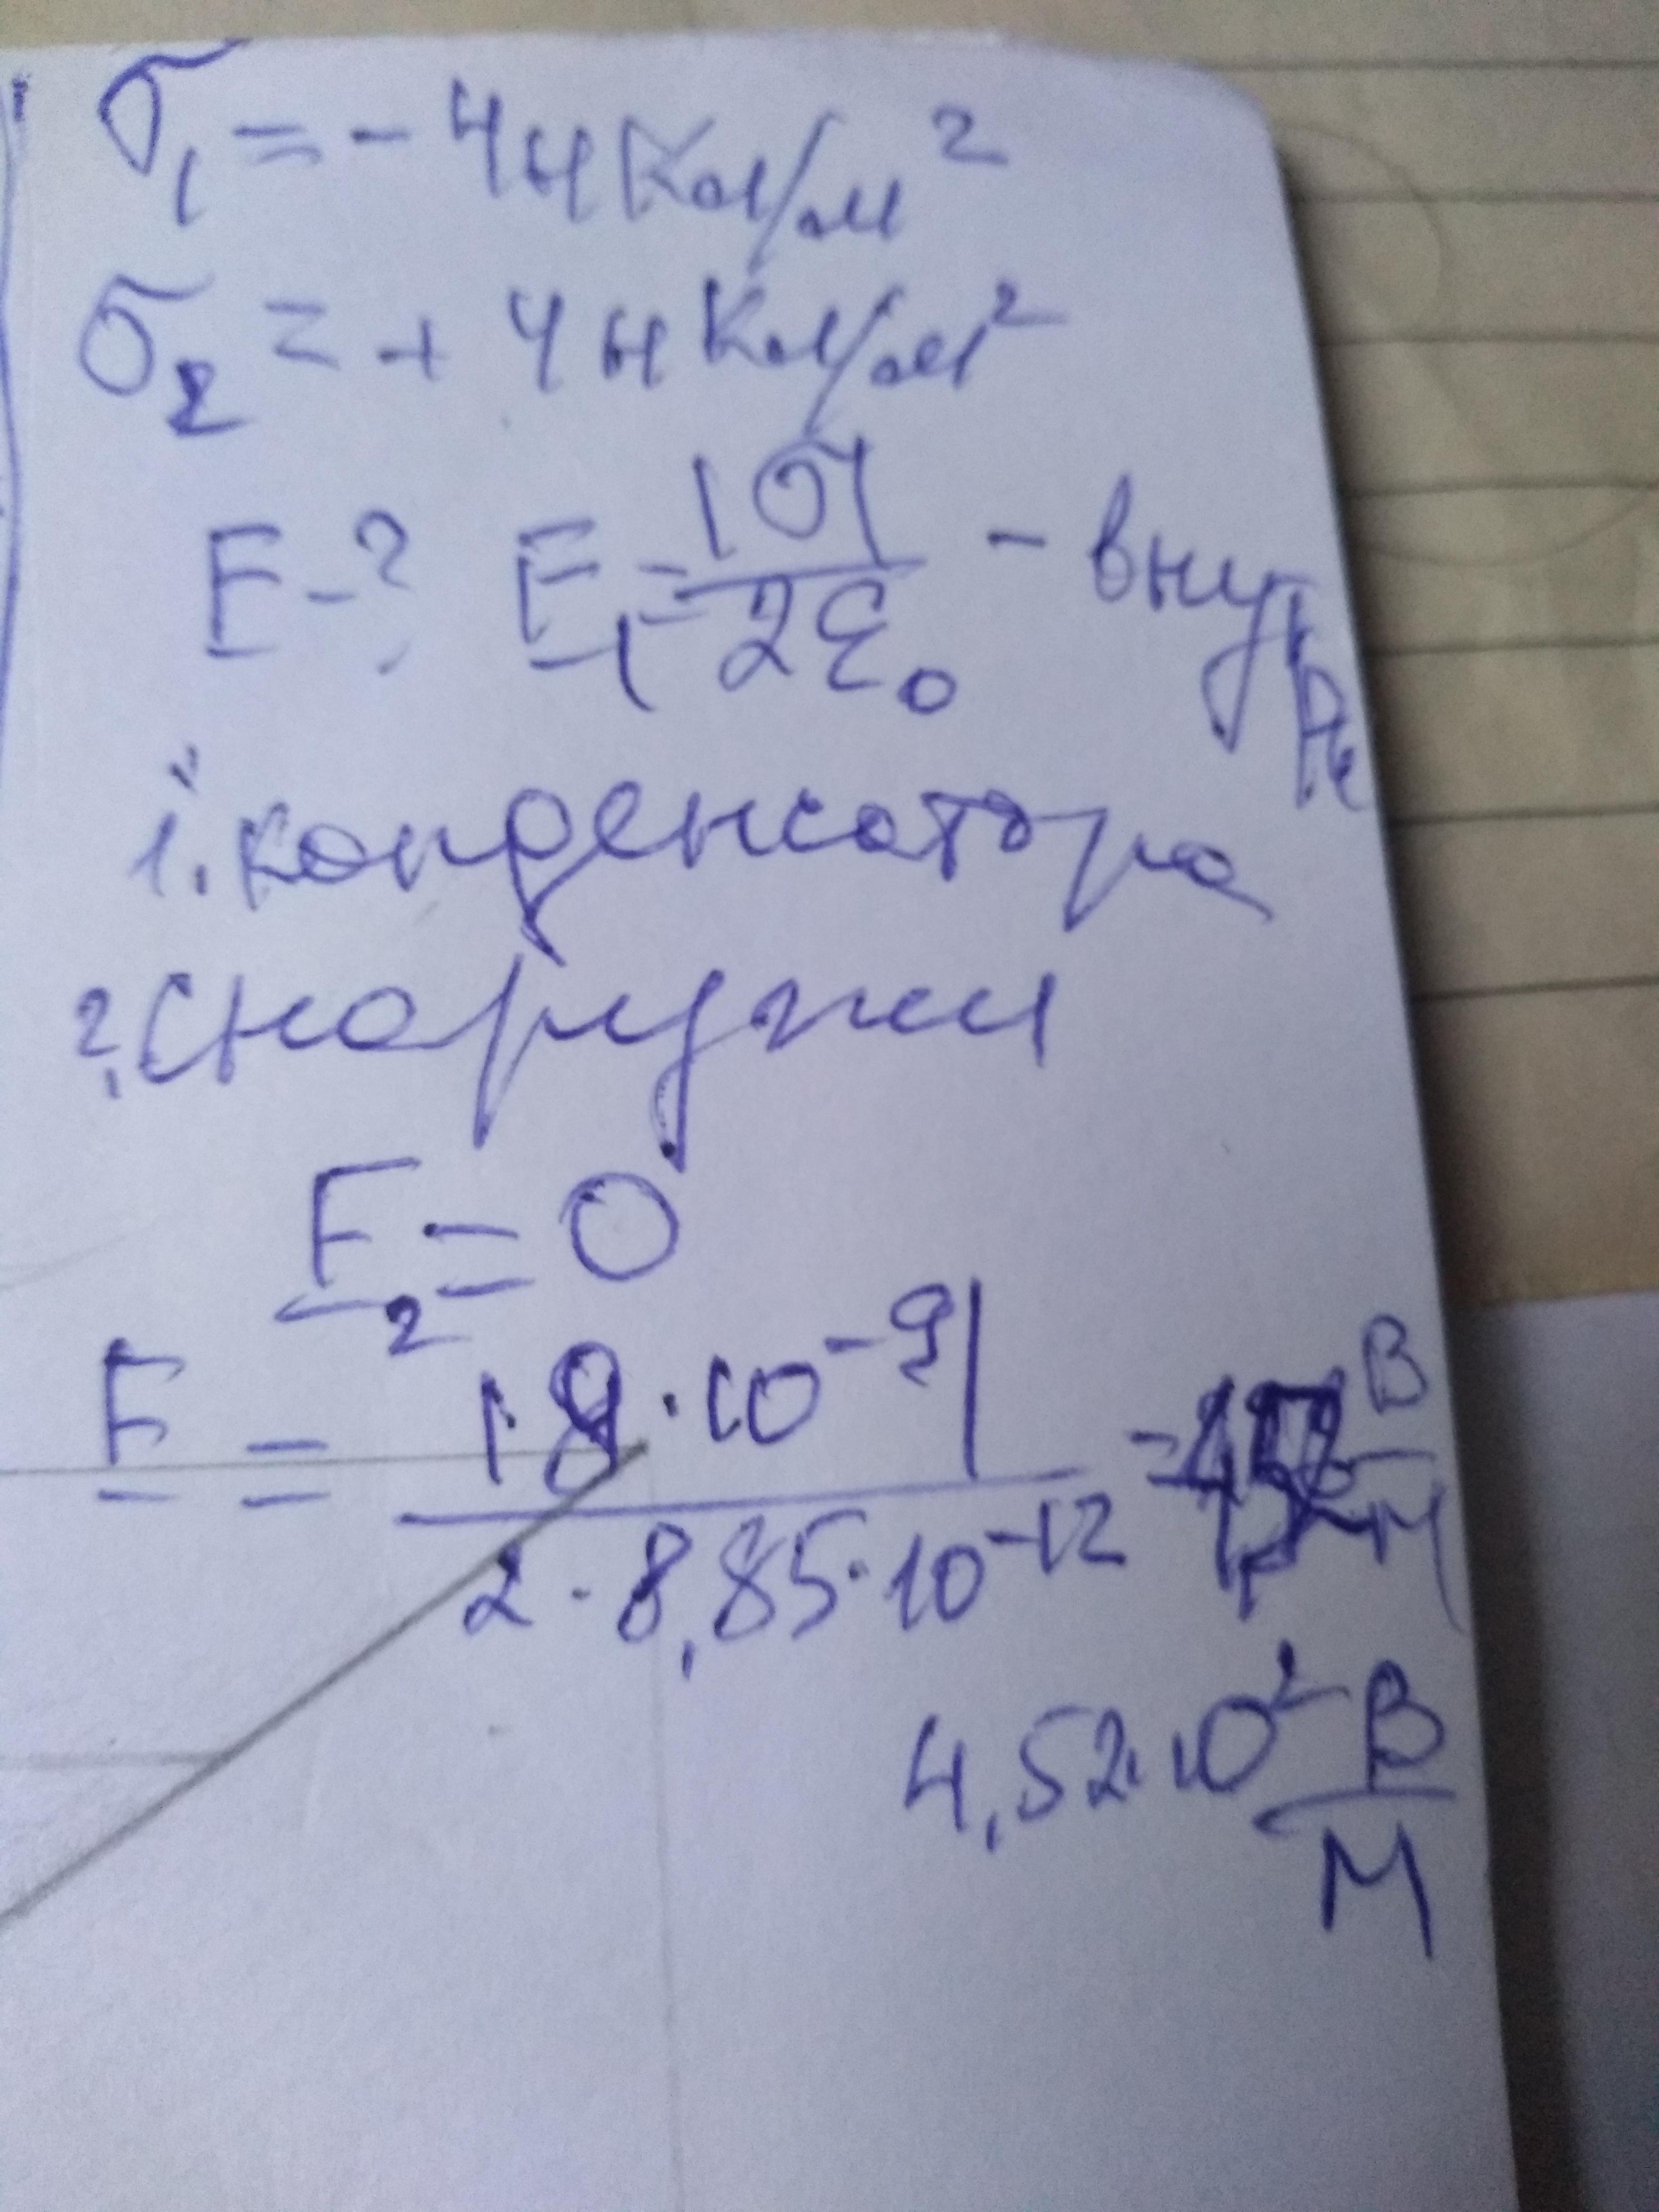 σ₁ = - 4 нКл/м²
σ₂ = + 4 нКл/м²
E - ? E₁ = |σ| / 2ε₀ - внутри
1. конденсатора
2. Снаружи
E₂ = 0
E = |8 · 10⁻⁹| / 2 · 8,85 · 10⁻¹² = В/м
4,52 · 10² В/м